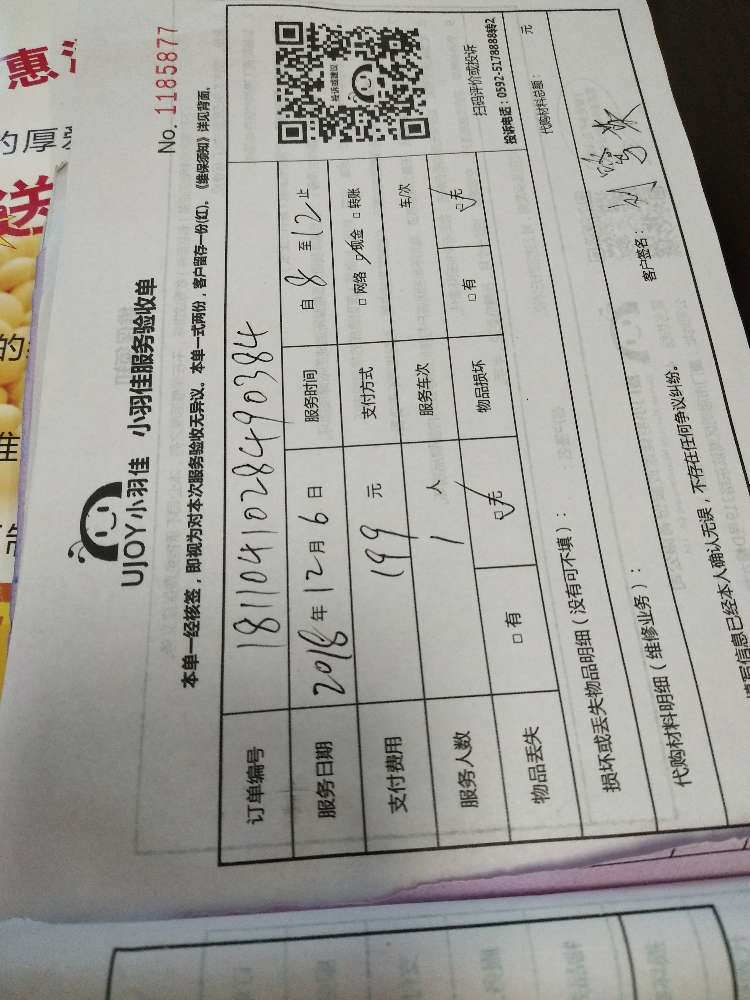 惠
的厚
送
的
No. 1185877
UJOY小羽佳 小羽佳服务验收单
本单一经核签，即视为对本次服务验收无异议。本单一式两份，客户留存一份(红)，《维保须知》详见背面。
订单编号 18110410284490384
服务日期 2018年12月6日 服务时间 自8至12止
支付费用 199元 支付方式 □网络 ☑现金 □转账
服务人数 1人 服务车次 车/次
物品丢失 □有 ☑无 物品损坏 □有 ☑无
投诉或建议
扫码评价或投诉
投诉电话：0592-5178888转2
损坏或丢失物品明细（没有可不填）：
代购材料明细（维修业务）： 代购材料总额： 元
填写信息已经本人确认无误，不存在任何争议纠纷。 客户签名：